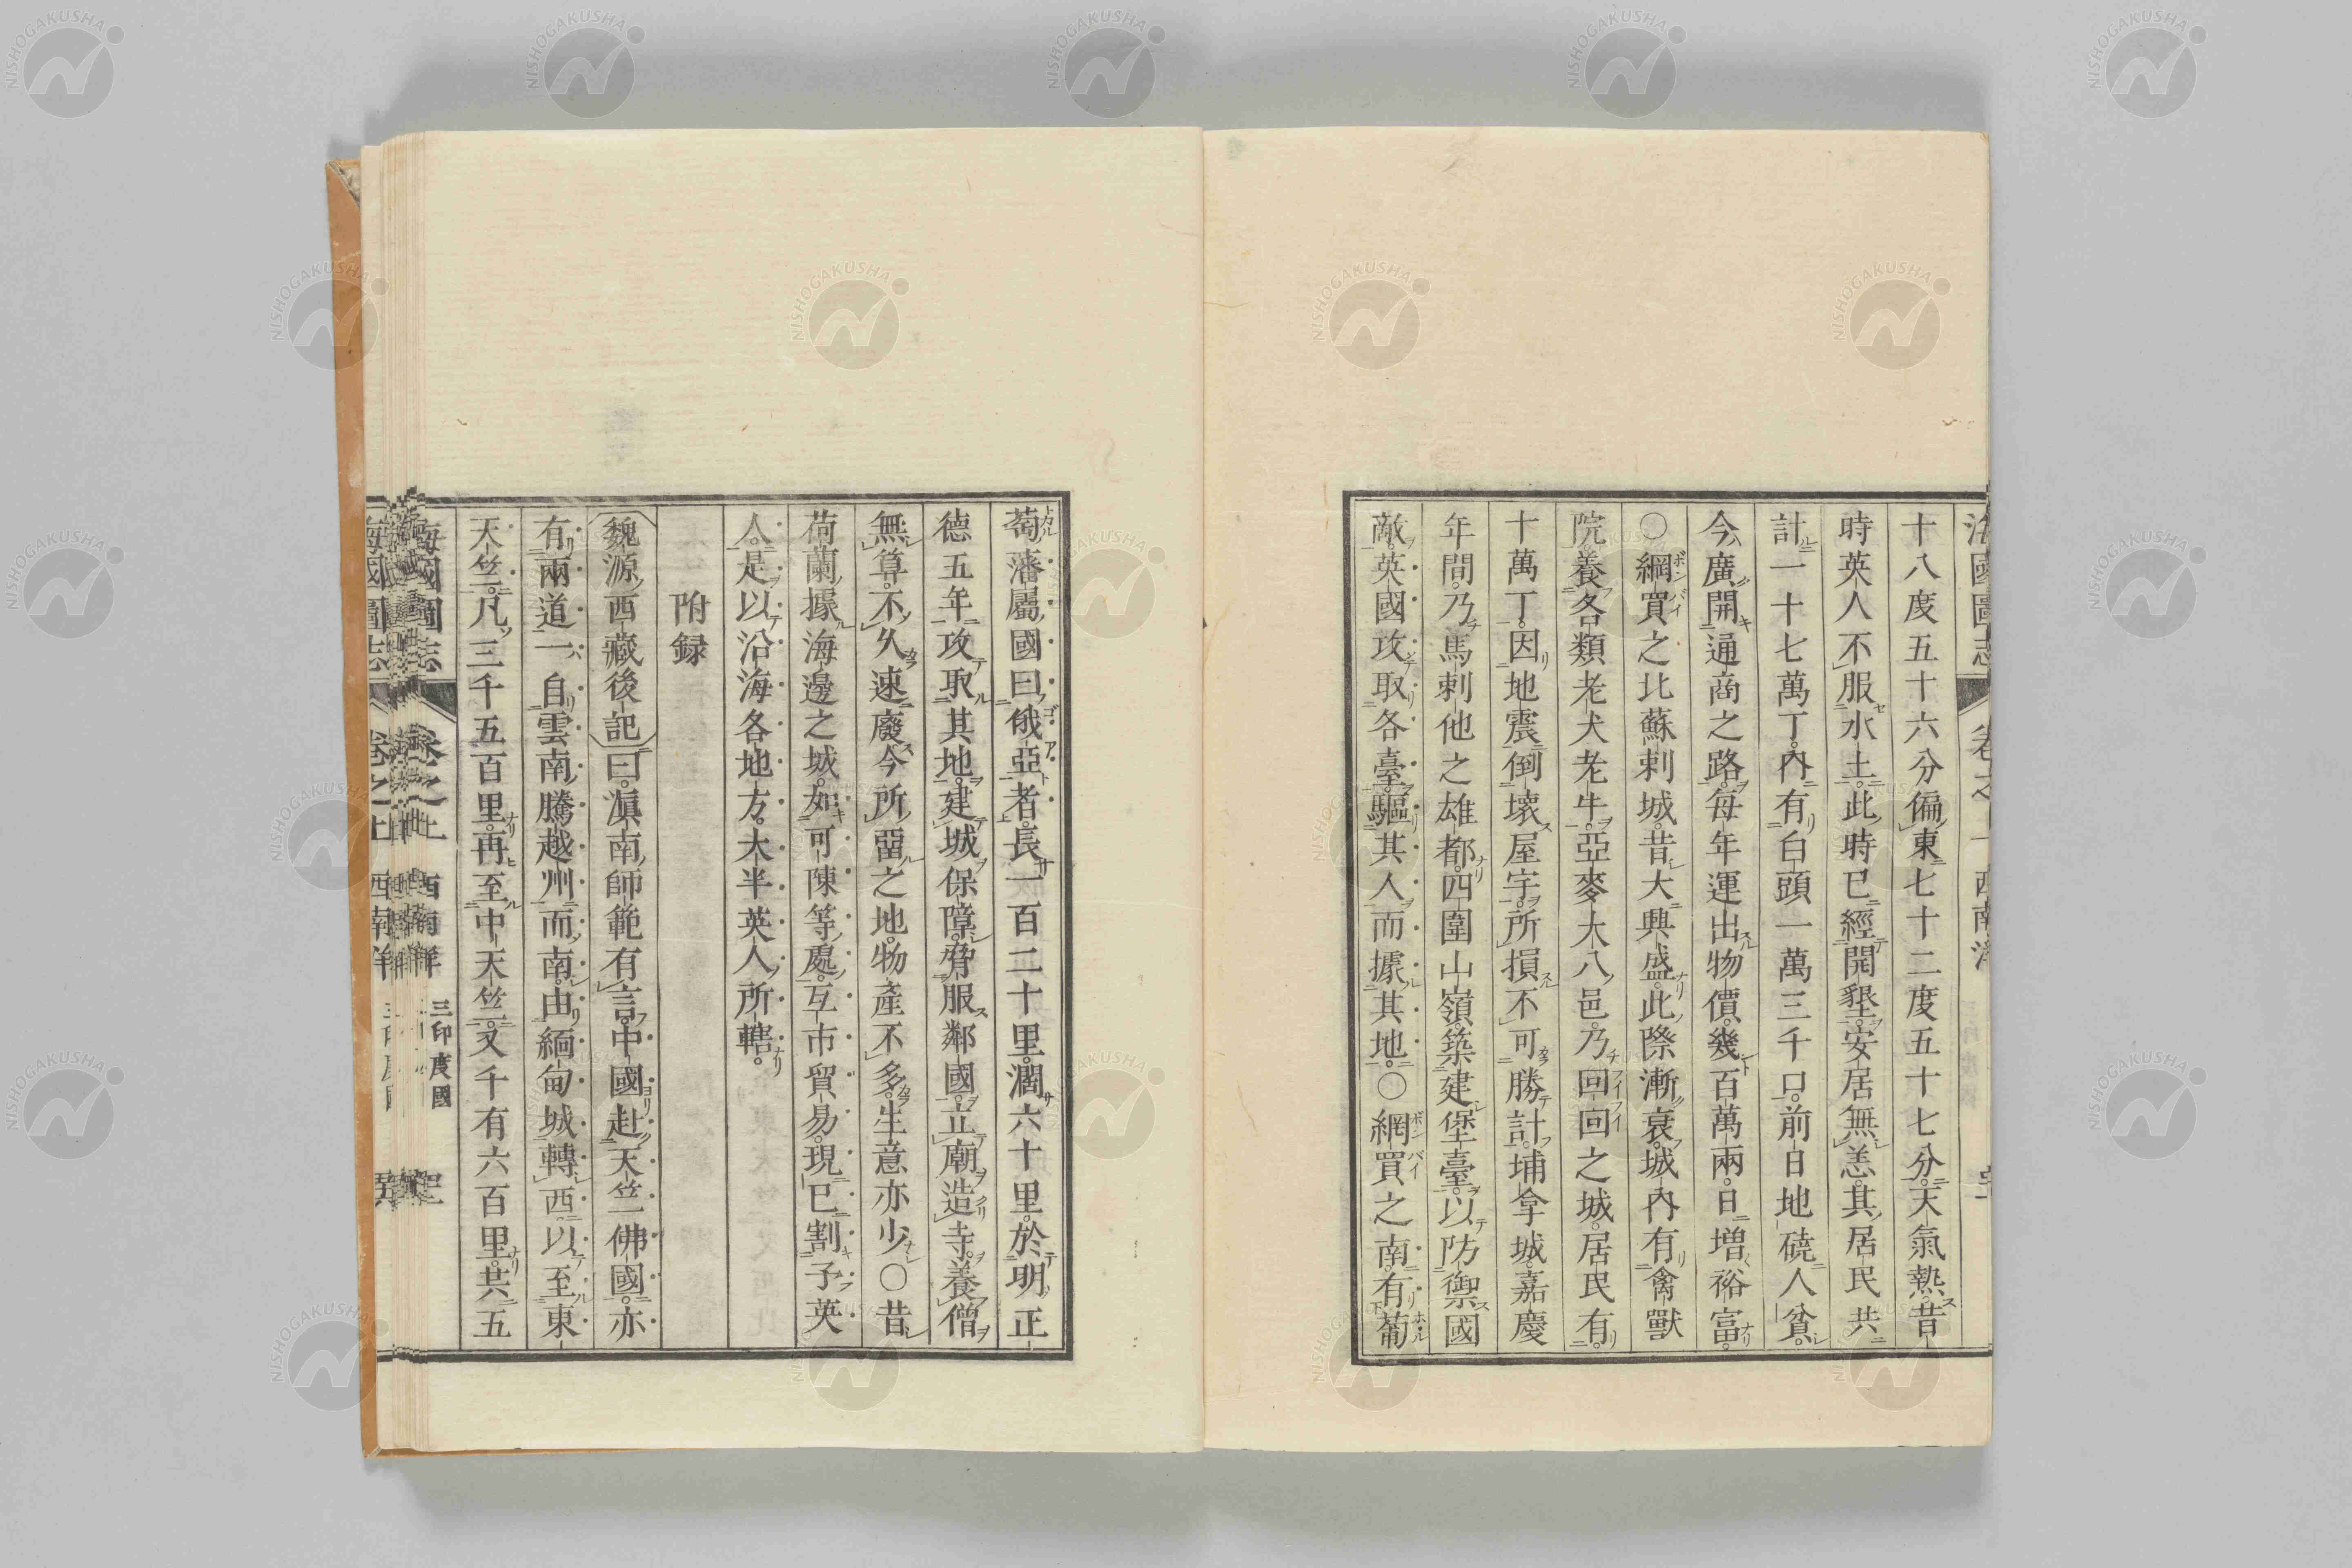 十八度五十六分偏東七十二度五十七分。天氣熱。昔
時英人不服水土。此時已經開墾。安居無恙。其居民共
計一十七萬丁。內有白頭一萬三千口。前日地磽人貧。
今廣開通商之路。每年運出物價。幾百萬兩。日增裕富。
〇網買之北蘇剌城。昔大興盛。此際漸衰。城內有禽獸
院。養各類老犬老牛。亞麥大八邑。乃回回之城。居民有
十萬丁。因地震倒壞屋宇。所損不可勝計。埔拿城。嘉慶
年間。乃馬剌他之雄都。四圍山嶺。築建堡臺。以防禦國
敵。英國攻取各臺。驅其人而據其地。〇網買之南。有葡
萄藩屬國曰俄亞者。長一百二十里。濶六十里。於明正
德五年。攻取其地。建城保障。脅服鄰國。立廟造寺。養僧
無算。不久速廢。今所留之地。物產不多。生意亦少。〇昔
荷蘭據海邊之城。如可陳等處。互市貿易。現已割予英
人。是以沿海各地方。大半英人所轄。
附録
魏源西藏後記曰。滇南師範有言。中國赴天竺佛國。亦
有兩道。一自雲南騰越州而南。由緬甸城轉西。以至東
天竺。凡三千五百里。再至中天竺。又千有六百里。共五
海國圖志 卷之上 西南洋 三印度國